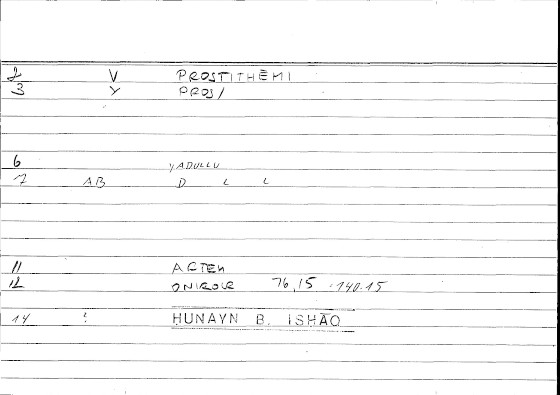 2 V PROSTITHĒMI
3 Y PROS/
6 YADULLU
7 AB D L L
11 ARTEM
12 ONIROCR 76,15 -140.15
14 ! HUNAYN B. ISHĀQ